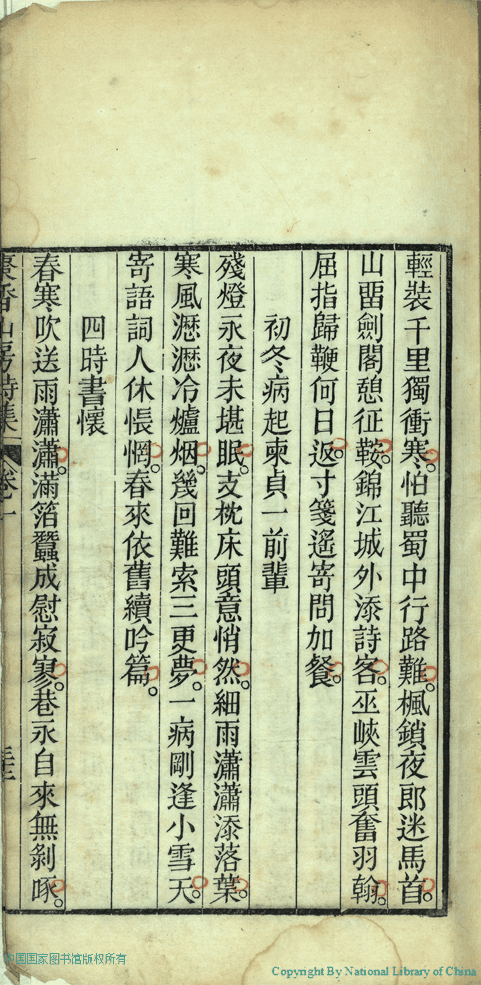 輕裝千里獨衝寒。怕聽蜀中行路難。楓鎖夜郎迷馬首。
山畱劍閣憩征鞍。錦江城外添詩客。巫峽雲頭奮羽翰。
屈指歸鞭何日返。寸箋遙寄問加餐。
初冬病起柬貞一前輩
殘燈永夜未堪眠。支枕床頭意悄然。細雨瀟瀟添落葉。
寒風瀝瀝冷爐烟。幾回難索三更夢。一病剛逢小雪天。
寄語詞人休悵惘。春來依舊續吟篇。
四時書懷
春寒吹送雨瀟瀟。滿箔蠶成慰寂寥。巷永自來無剝啄。
山房詩集 卷一
中国国家图书馆版权所有
Copyright By National Library of China